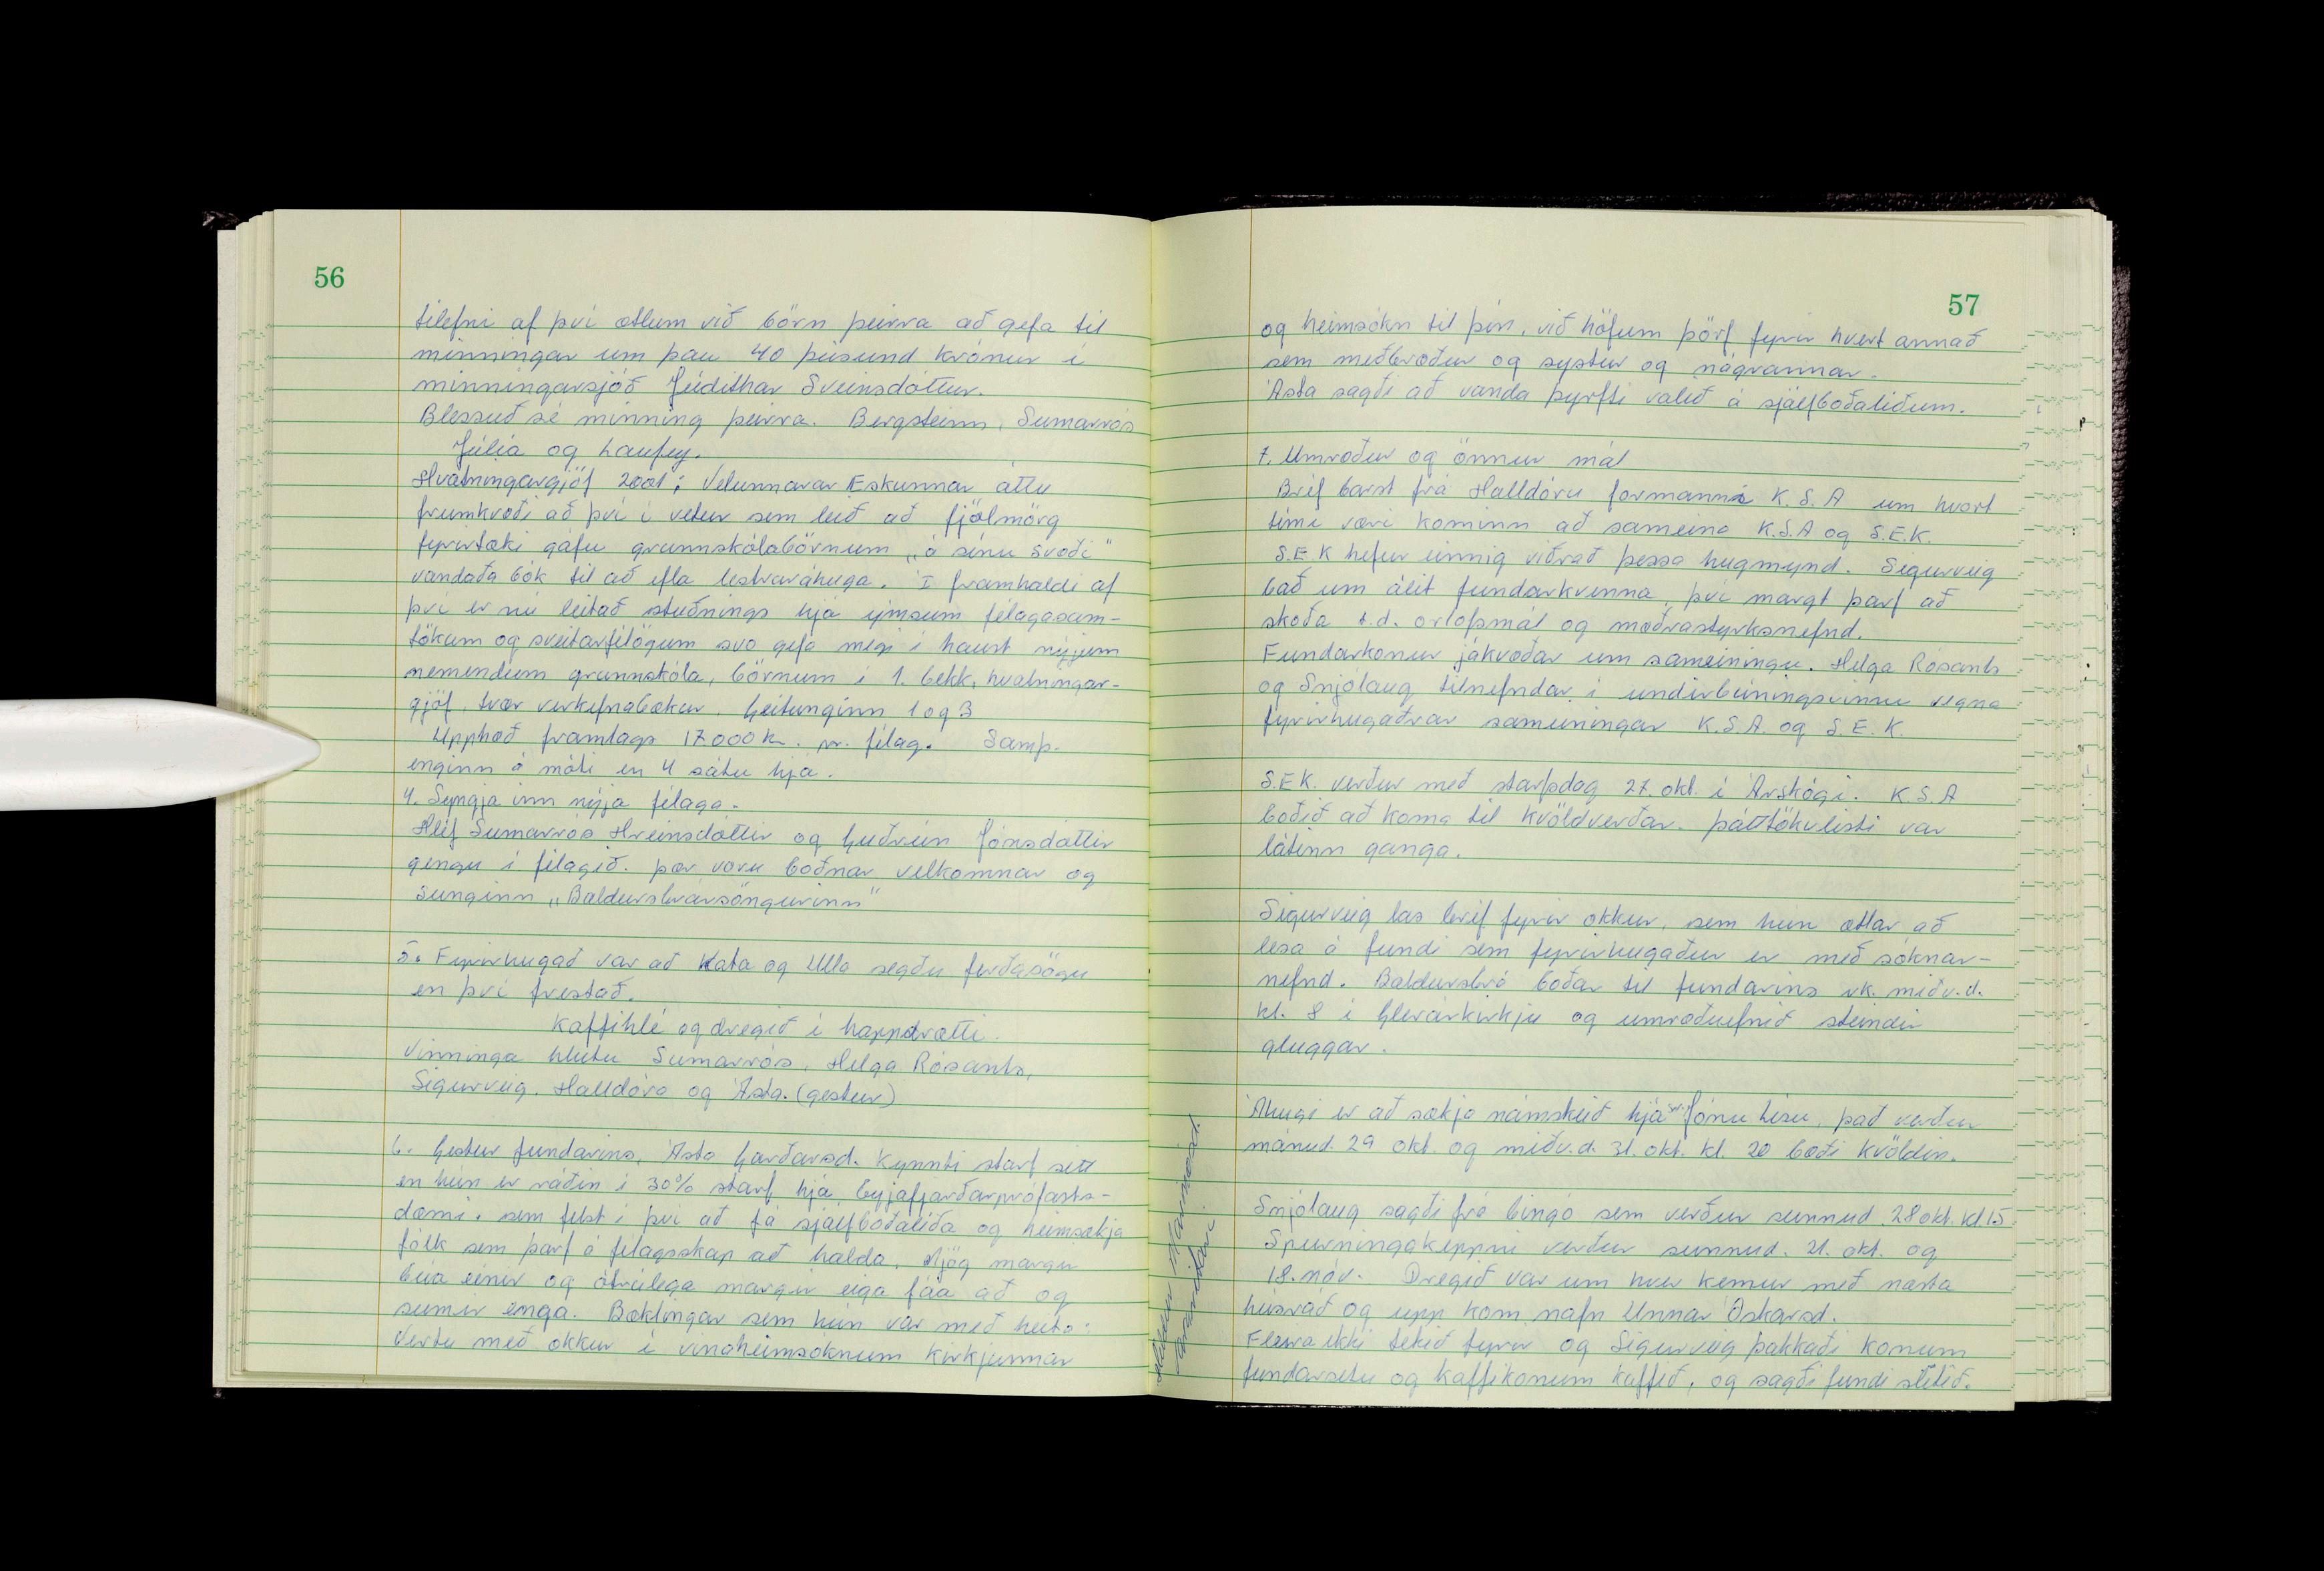 56
tilefni af því ætlum við börn þeirra að gefa til
minningar um þau 40 þúsund krónur í
minningarsjóð Júdithar Sveinsdóttur.
Blessuð sé minning þeirra. Bergsteinn, Sumarrós
Júlía og Laufey.
Hvatningargjöf 2001; Velunnarar Æskunnar áttu
frumkvæði að því í vetur sem leið að fjölmörg
fyrirtæki gáfu grunnskólabörnum „á sínu svæði"
vandaða bók til að efla lestraráhuga. Í framhaldi af
því er nú leitað stuðnings hjá ýmsum félagasam-
tökum og sveitarfélögum svo gefa megi í haust nýjum
nemendum grunnskóla, börnum í 1. bekk, hvatningar-
gjöf, tvær verkefnabækur. Geitunginn 1 og 3
Upphæð framlags 17.000 kr. pr. félag. Samþ.
enginn á móti en 4 sátu hjá.
4. Syngja inn nýja félaga.
Hlíf Sumarrós Hreinsdóttir og Guðrún Jónsdóttir
gengu í félagið. þær voru boðnar velkomnar og
sunginn „Baldursbrársöngurinn"
5. Fyrirhugað var að Kata og Ulla segðu ferðasögu
en því frestað.
Kaffihlé og dregið í happdrætti.
Vinninga hlutu Sumarrós, Helga Rósants,
Sigurveig, Halldóra og Ásta. (gestur)
6. Gestur fundarins, Ásta Garðarsd. kynnti starf sitt
en hún er ráðin í 30% starf hjá Eyjafjarðarprófasts-
dæmi. sem felst í því að fá sjálfboðaliða og heimsækja
fólk sem þarf á félagsskap að halda. Mjög margir
búa einir og ótrúlega margir eiga fáa að og
sumir enga. Bæklingar sem hún var með heita:
Vertu með okkur í vinaheimsóknum kirkjunnar
57
og heimsókn til þín, við höfum þörf fyrir hvert annað
sem meðbræður og systur og nágrannar.
Ásta sagði að vanda þyrfti valið á sjálfboðaliðum.
7. Umræður og önnur mál
Bréf barst frá Halldóru formanni K.S.A um hvort
tími væri kominn að sameina K.S.A og S.E.K.
S.E.K hefur einnig viðrað þessa hugmynd. Sigurveig
bað um álit fundarkvenna, því margt þarf að
skoða t.d. orlofsmál og mæðrastyrksnefnd.
Fundarkonur jákvæðar um sameiningu. Helga Rósants
og Snjólaug tilnefndar í undirbúningsvinnu vegna
fyrirhugaðrar sameiningar K.S.A. og S.E.K.
S.E.K. verður með starfsdag 27. okt. í Árskógi. K.S.A
boðið að koma til kvöldverðar. þátttökulisti var
látinn ganga.
Sigurveig las bréf fyrir okkur, sem hún ætlar að
lesa á fundi sem fyrirhugaður er með sóknar-
nefnd. Baldursbrá boðar til fundarins nk. miðv.d.
kl. 8 í Glerárkirkju og umræðuefnið steindir
gluggar.
Áhugi er að sækja námskeið hjá sr. Jónu Lísu, það verður
mánud. 29 okt. og miðv.d. 31. okt. kl. 20 bæði kvöldin.
Snjólaug sagði frá bingó sem verður sunnud. 28 okt. kl 15
Spurningakeppni verður sunnud. 21. okt. og
18. nóv. Dregið var um hver kemur með næsta
húsráð og upp kom nafn Unnar Óskarsd.
Fleira ekki tekið fyrir og Sigurveig þakkaði konum
fundarsetu og kaffikonum kaffið, og sagði fundi slitið.